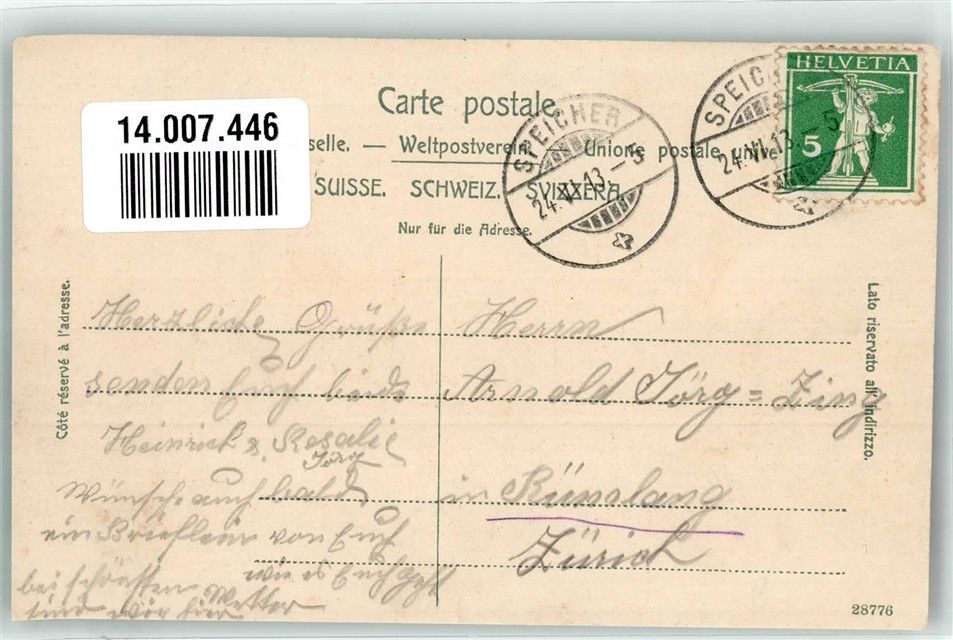 14.007.446
Carte postale.
selle. — Weltpostverein. Unione postale unive
SUISSE. SCHWEIZ. SVIZZERA.
Nur für die Adresse.
SPEICHER
24.VI.13.–5
SPEIC
24.VI.13.–5
HELVETIA
5
Côté réservé à l'adresse.
Lato riservato all' indirizzo.
Herzliche Grüße
senden Euch beide
Heinrich & Rosalie
Jörg
Wünsche auch bald
ein Brieflein von Euch
wie es Euch geht
bei schönsten Wetter
sind wir hier
Herrn
Arnold Jörg=Zing
in Rümlang
Zürich
28776